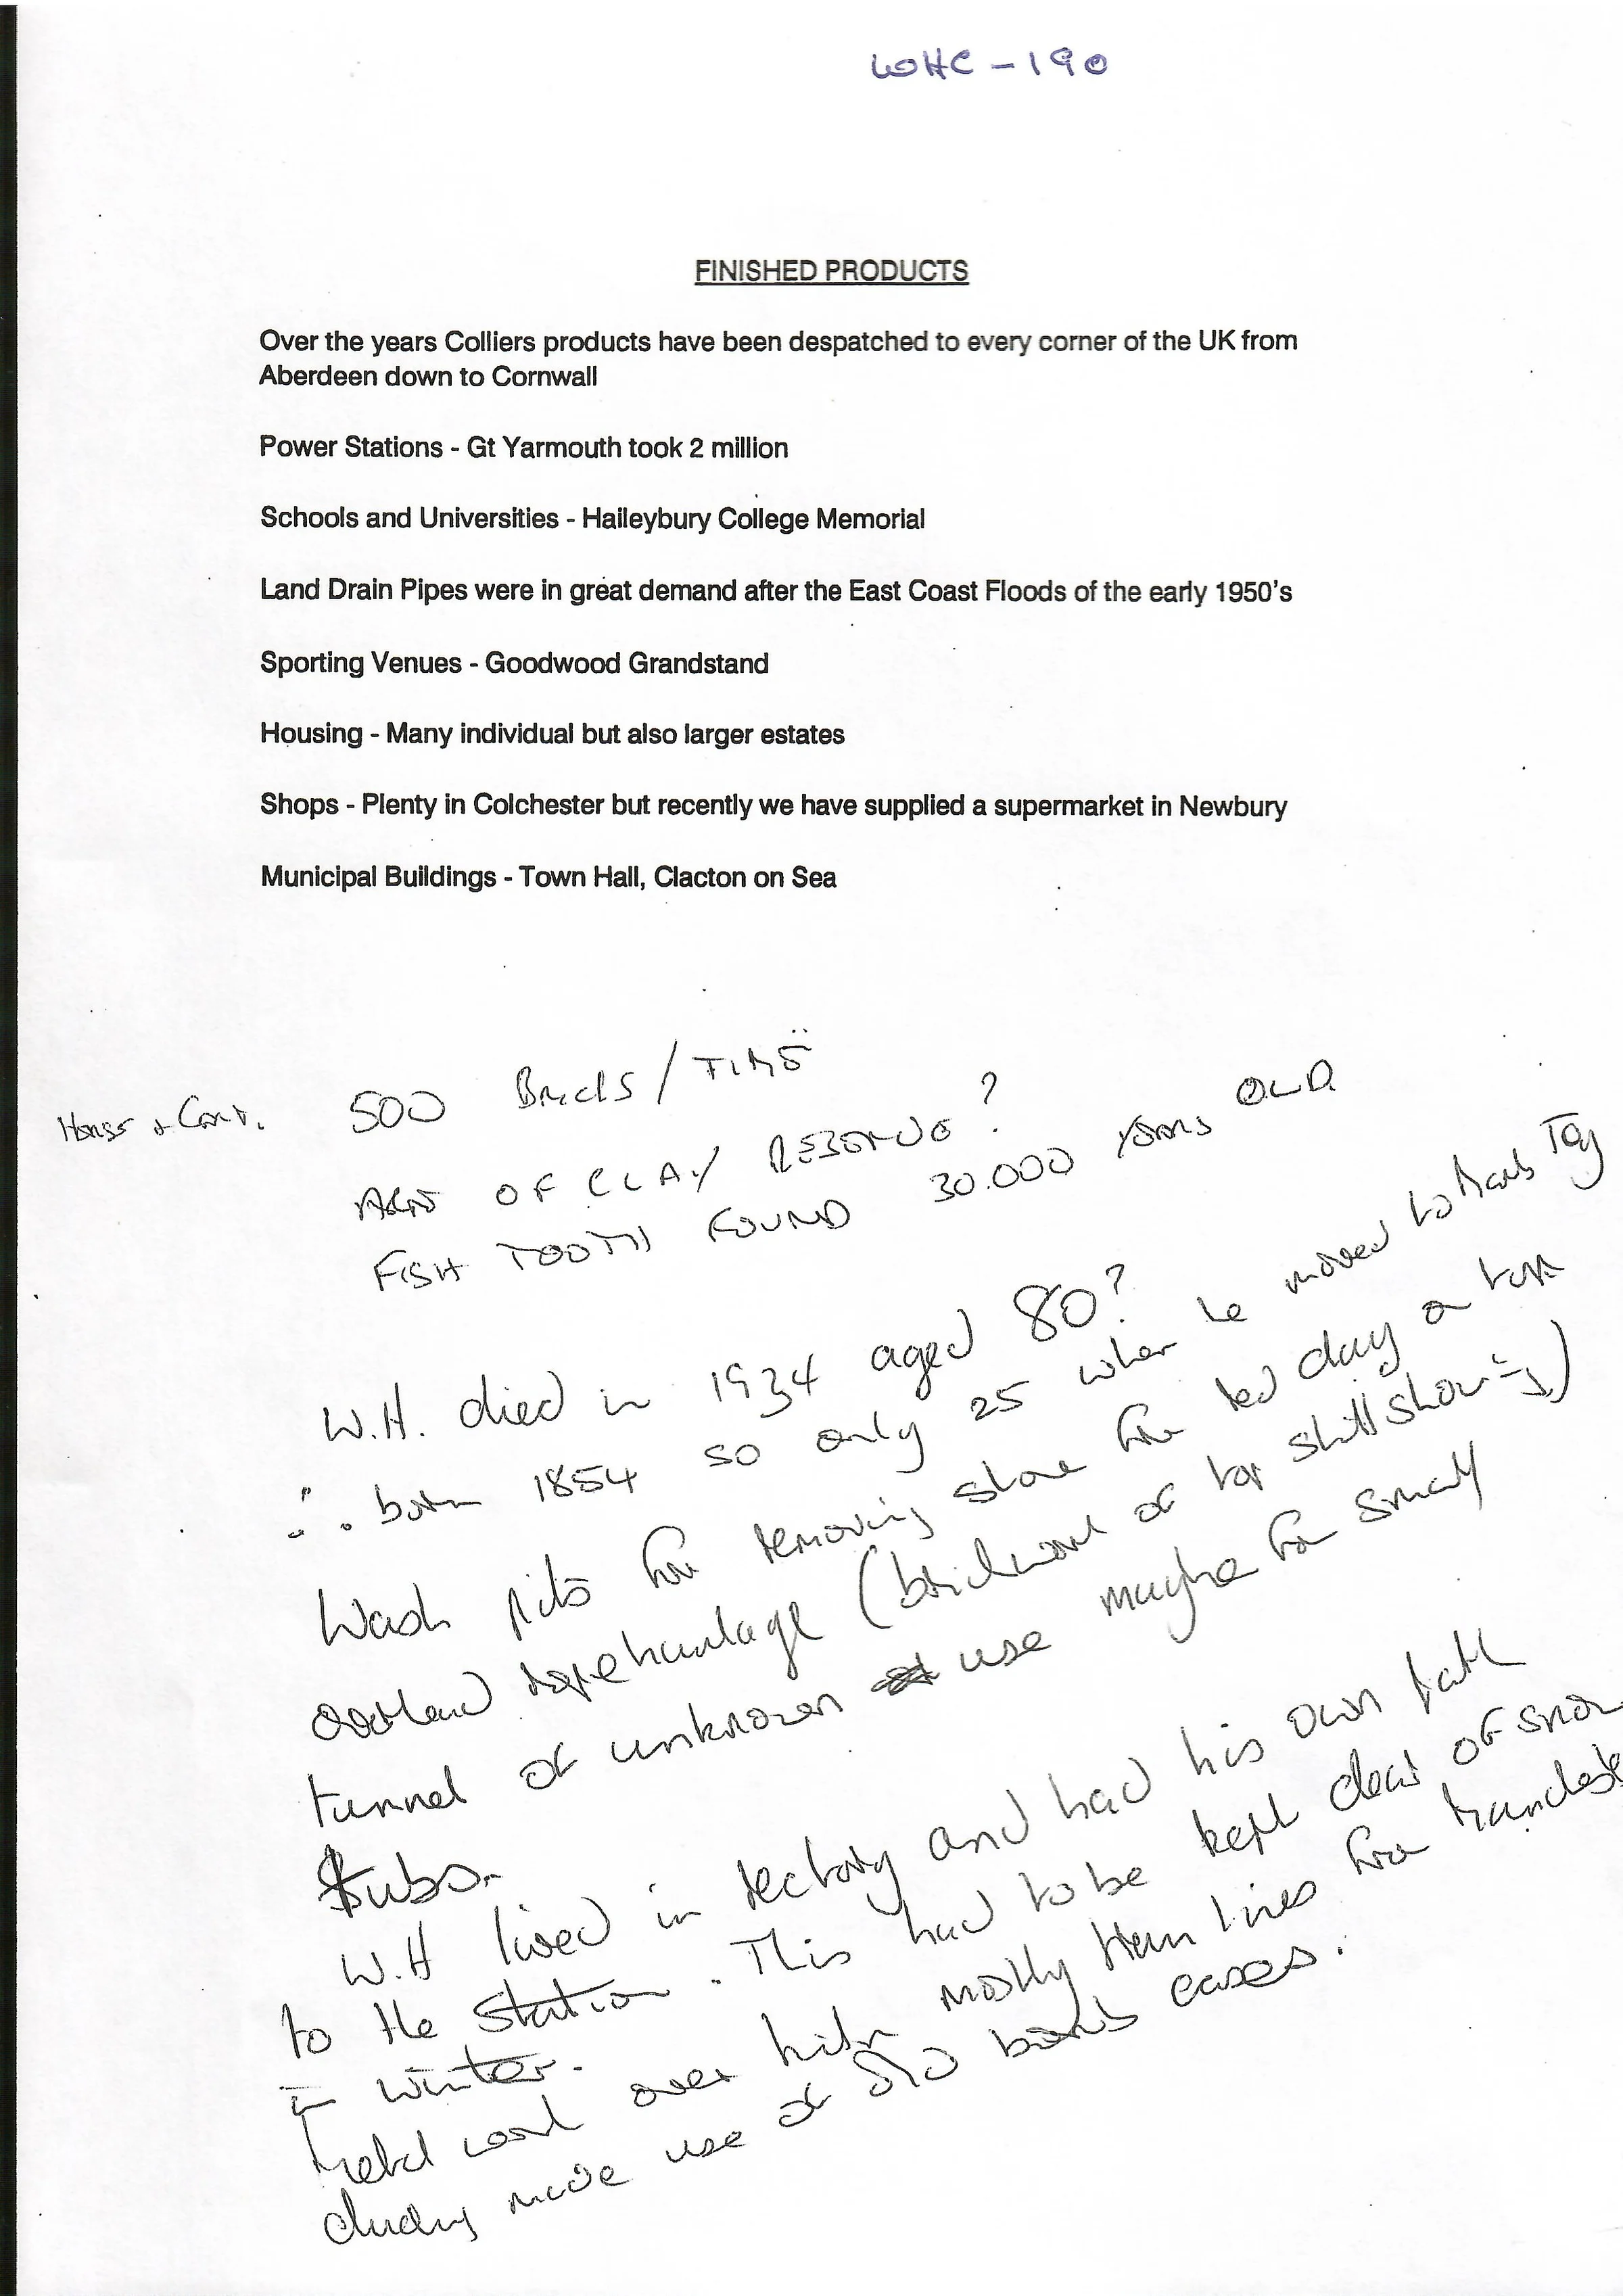 WHC - 190
FINISHED PRODUCTS
Over the years Colliers products have been despatched to every corner of the UK from
Aberdeen down to Cornwall
Power Stations - Gt Yarmouth took 2 million
Schools and Universities - Haileybury College Memorial
Land Drain Pipes were in great demand after the East Coast Floods of the early 1950's
Sporting Venues - Goodwood Grandstand
Housing - Many individual but also larger estates
Shops - Plenty in Colchester but recently we have supplied a supermarket in Newbury
Municipal Buildings - Town Hall, Clacton on Sea
Horse + Cart. 500 Bricks / TIME
AGE OF CLAY RESERVE?
FISH TOOTH FOUND 30.000 YEARS OLD
W.H. died in 1934 aged 80?
∴ born 1854 so only 25 when he moved to Marks Tey
Wash pits for removing stone for red clay
overhead rope haulage (brickwork at top still showing)
tunnel of unknown use maybe for small
tubs.
W.H lived in rectory and had his own path
to the station. This had to be kept clear of snow
in winter.
Metal work over kiln mostly from
use of old bomb cases.